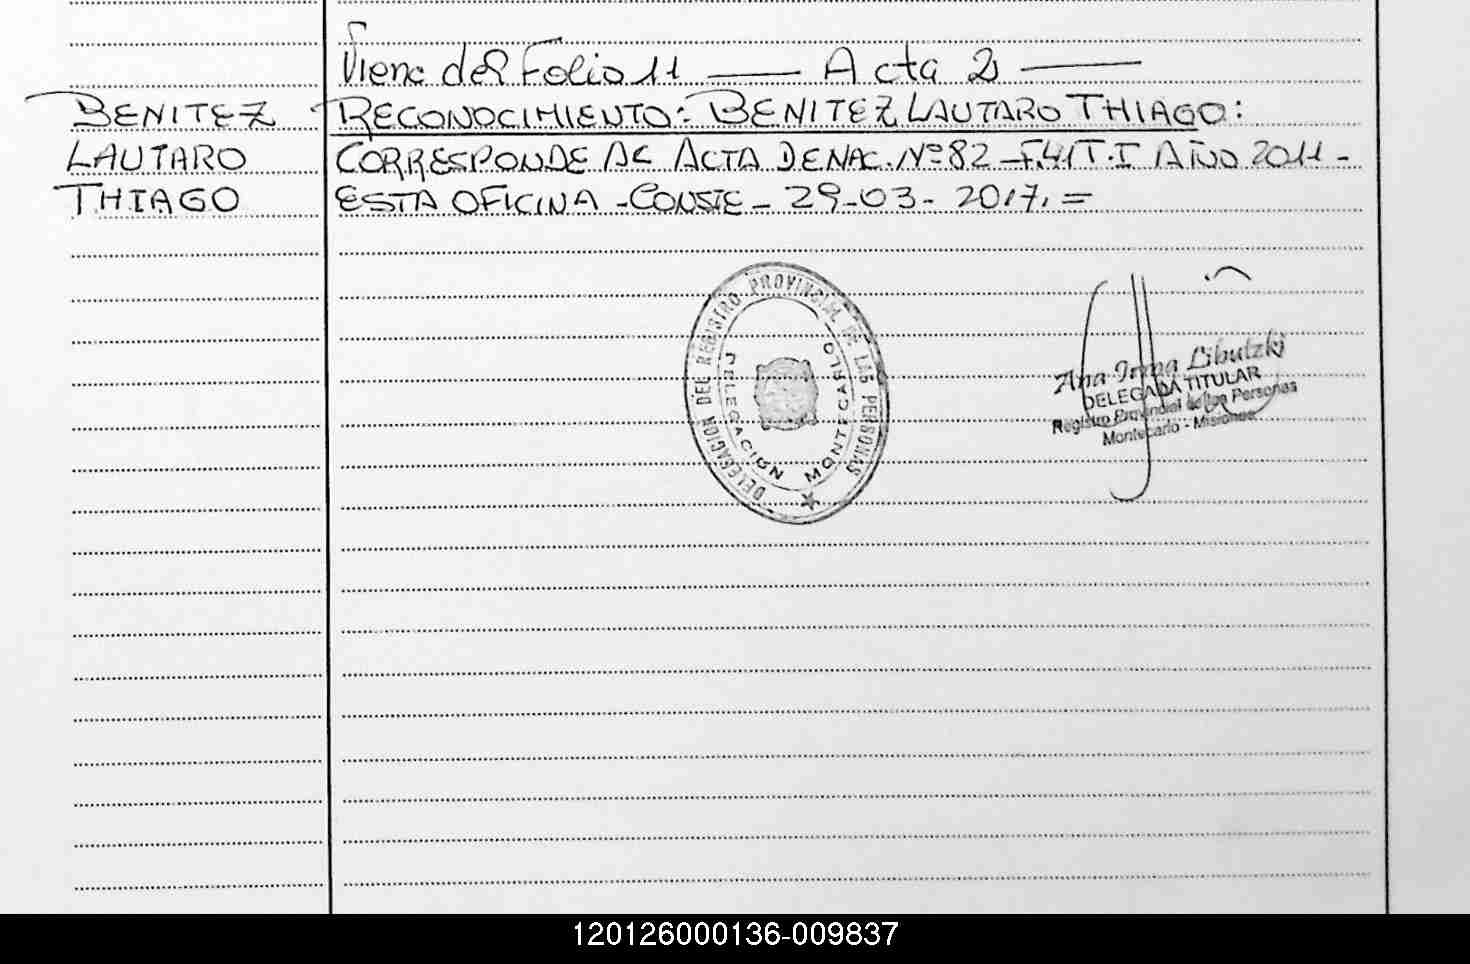 Viene del Folio 11 —— Acta 2 ——
BENITEZ RECONOCIMIENTO: BENITEZ LAUTARO THIAGO:
LAUTARO CORRESPONDE AL ACTA DE NAC. Nº 82 - F.41 T.I AÑO 2011 -
THIAGO ESTA OFICINA - CONSTE - 29-03-2017. =
DELEGACION DEL REGISTRO PROVINCIAL DE LAS PERSONAS
DELEGACION MONTECARLO
Ana Irma Libutzki
DELEGADA TITULAR
Registro Provincial de las Personas
Montecarlo - Misiones
120126000136-009837